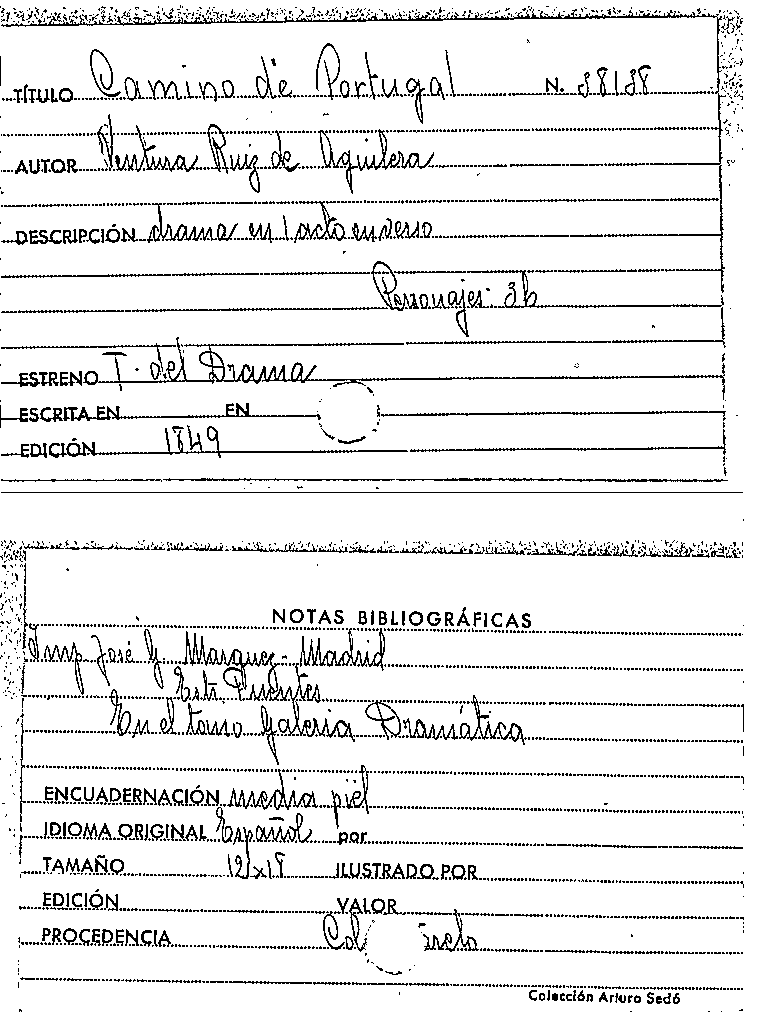 TÍTULO Camino de Portugal N. 38138
AUTOR Ventura Ruiz de Aguilera
DESCRIPCIÓN drama en 1 acto en verso
Personajes: 3h
ESTRENO T. del Drama
ESCRITA EN EN
EDICIÓN 1849
NOTAS BIBLIOGRÁFICAS
Imp José G. Marquez - Madrid
En el tomo Galeria Dramática
ENCUADERNACIÓN media piel
IDIOMA ORIGINAL Español por
TAMAÑO 12x18 ILUSTRADO POR
EDICIÓN VALOR
PROCEDENCIA
Colección Arturo Sedó